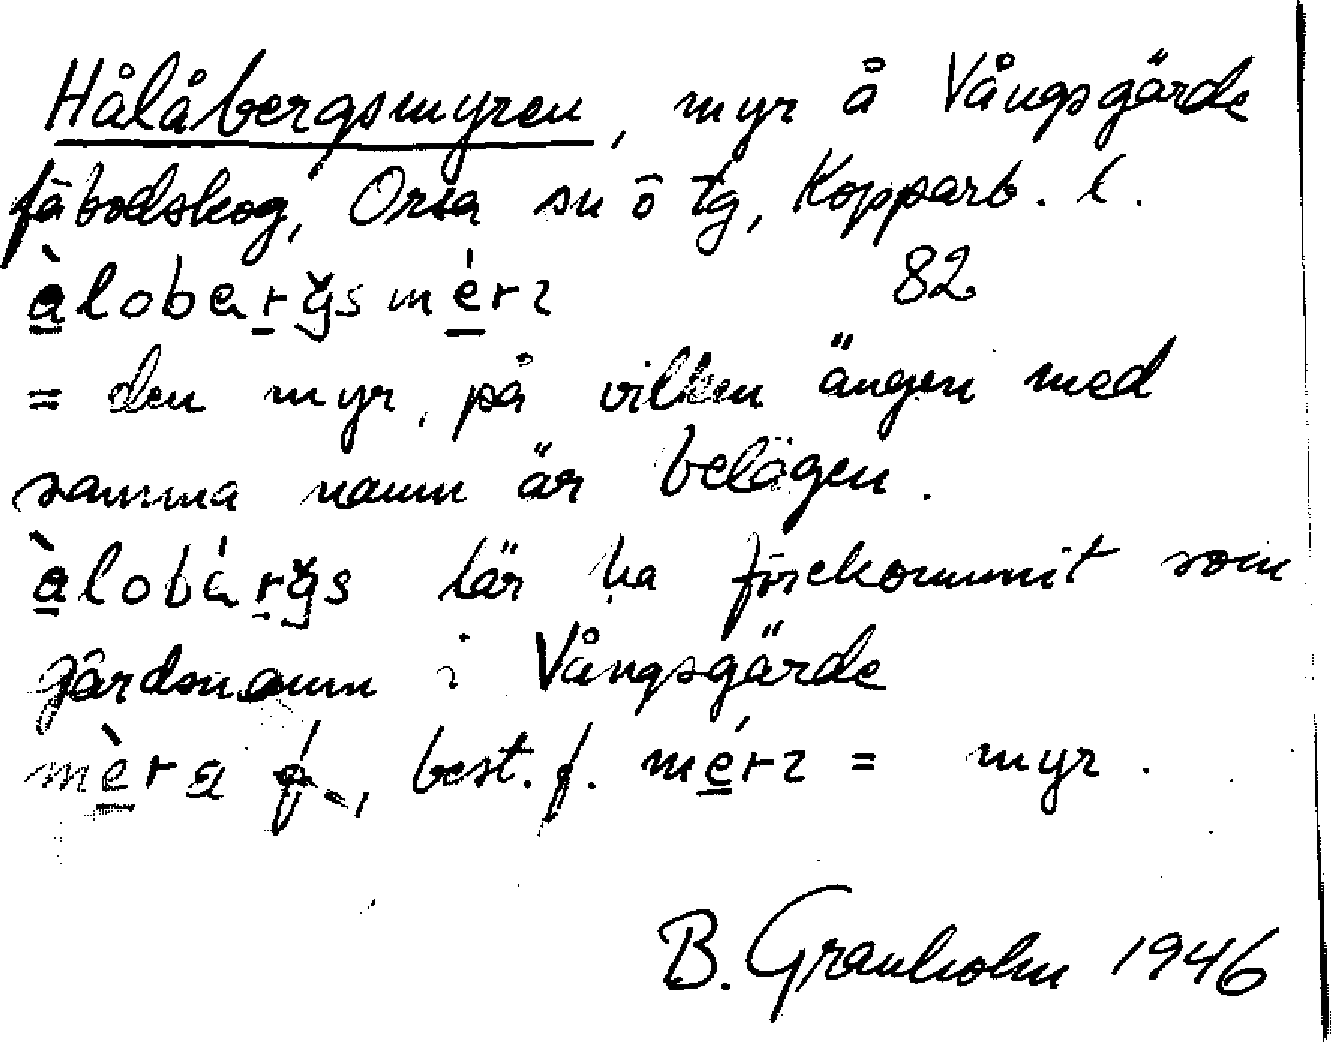 Hålåbergsmyren, myr å Vångsgärde
fäbodskog, Orsa sn ö tg, Kopparb. l.
àlobərgsmérɿ 82
= den myr, på vilken ängen med
samma namn är belägen.
àlobárgs lär ha förekommit som
gårdsnamn i Vångsgärde
mèra f., best. f. mérɿ = myr.
B. Granholm 1946